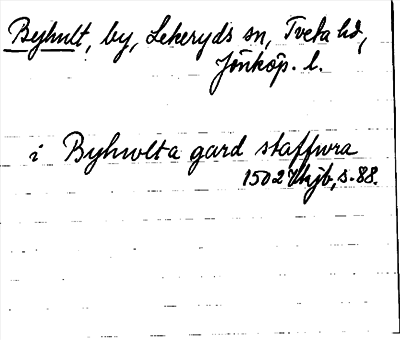 Byhult, by, Lekeryds sn, Tveta hd,
Jönköp. l.
i Byhwlta gard staffwra
1502 Vkjb, s. 88.